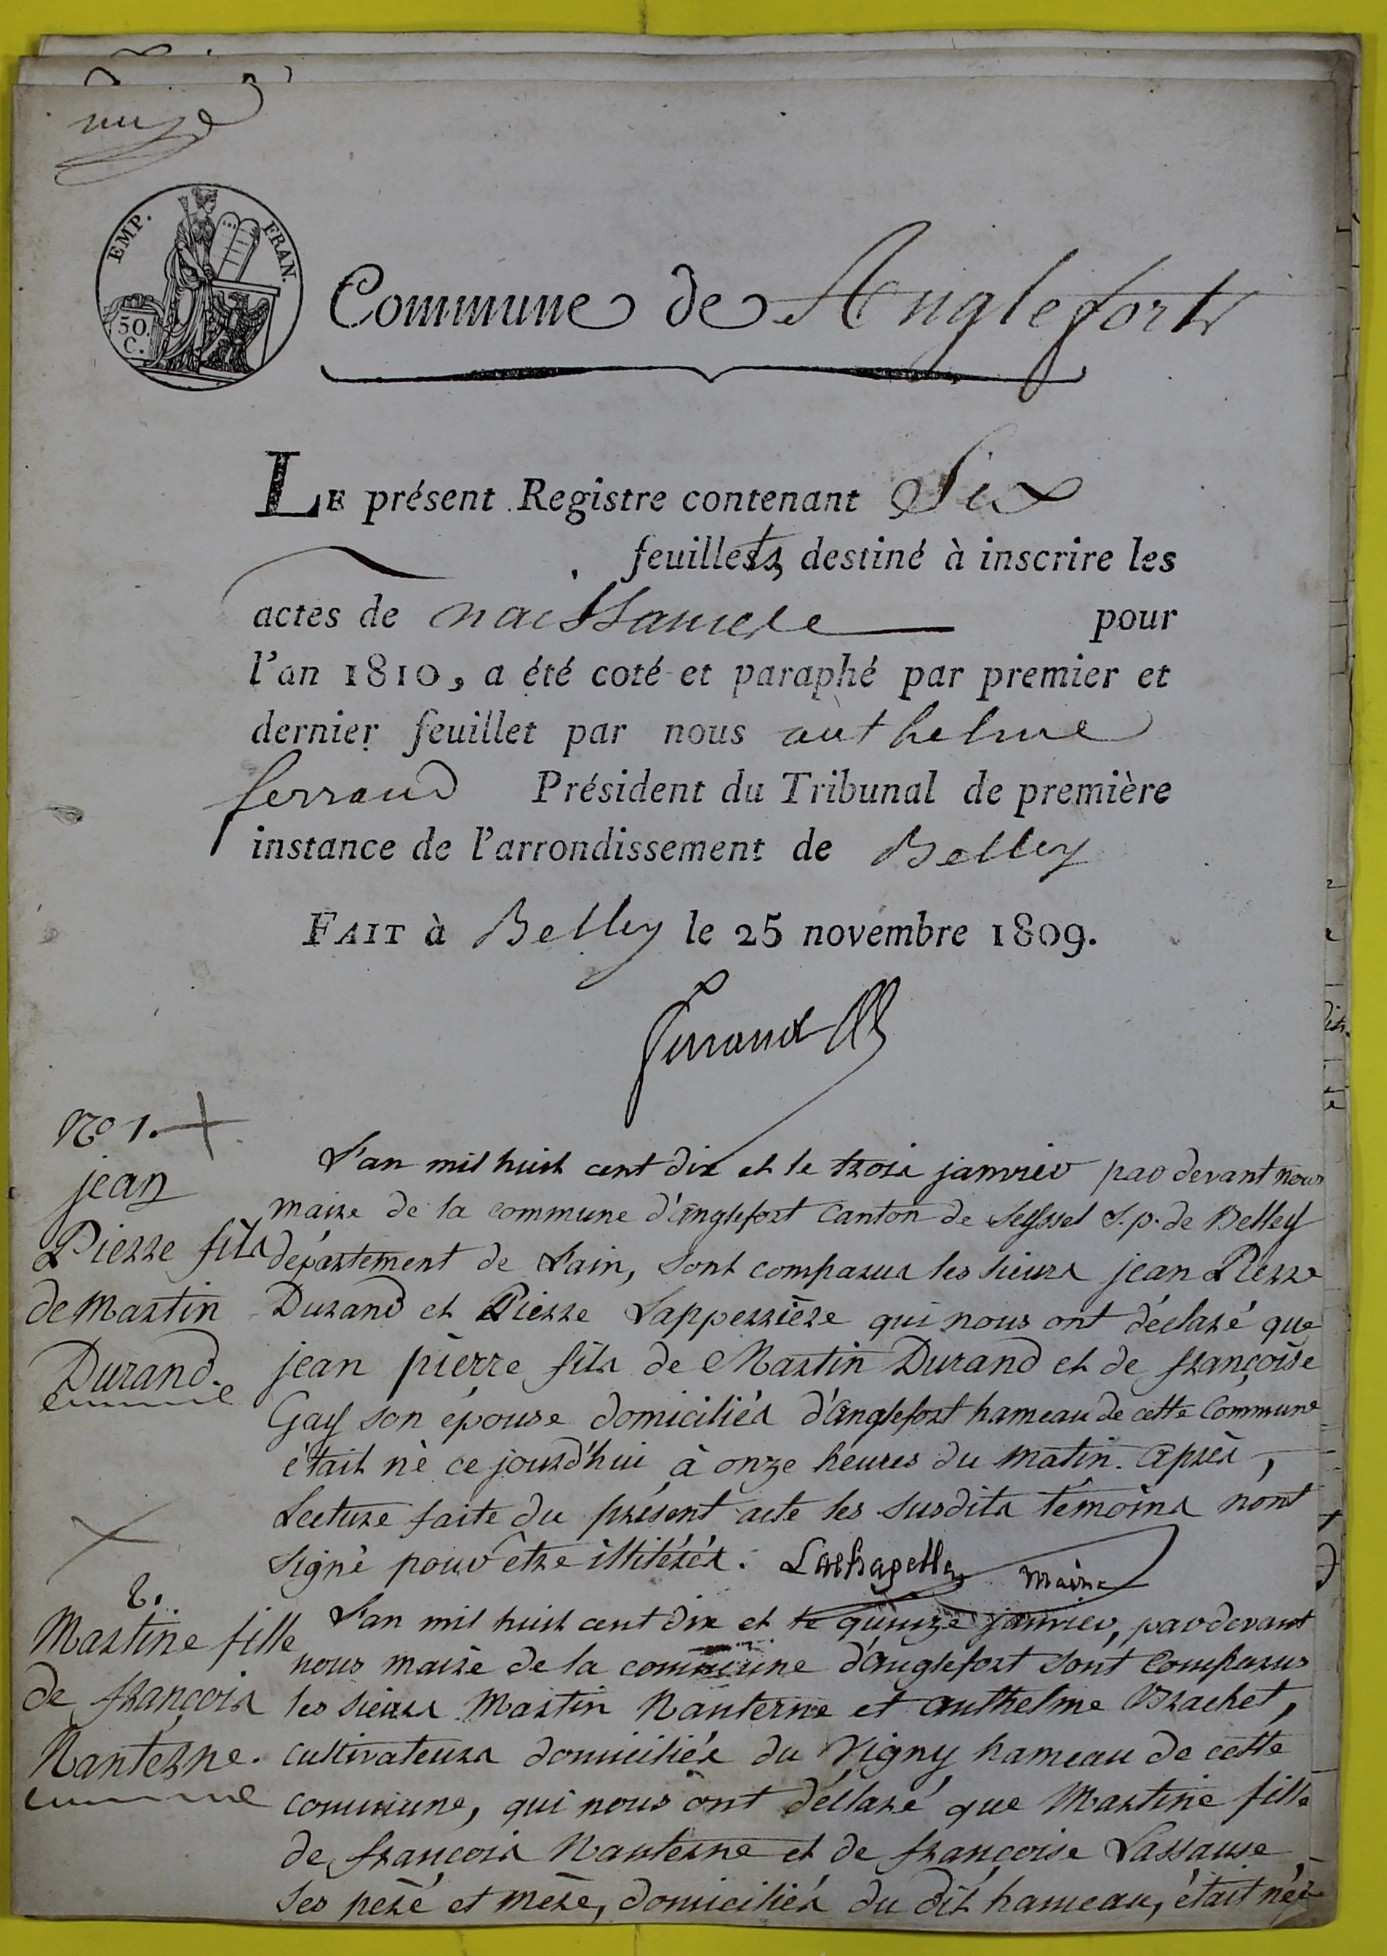 EMP. FRAN.
50.
C.
Commune de Anglefort
LE présent Registre contenant Six
feuillets, destiné à inscrire les
actes de naissance pour
l'an 1810, a été coté et paraphé par premier et
dernier feuillet par nous anthelme
ferrand Président du Tribunal de première
instance de l'arrondissement de Belley
FAIT à Belley le 25 novembre 1809.
ferrand
No 1.
jean
Pierre fils
de Martin
Durand.
L'an mil huit cent dix et le trois janvier par devant nous
maire de la commune d'anglefort Canton de Seyssel S.p. de Belley
département de Lain, sont comparus les sieurs jean Pierre
Durand et Pierre Lapperrière qui nous ont déclaré que
jean pierre fils de Martin Durand et de françoise
Gay son épouse domiciliés d'anglefort hameau de cette Commune
était né ce jourd'hui à onze heures du matin. après,
Lecture faite du présent acte les susdits témoins nont
signé pour être illitérés. Lachapelle maire
2.
Martine fille
de françois
Nanterne.
L'an mil huit cent dix et le quinze janvier, par devant
nous maire de la commune d'anglefort sont Comparus
les sieurs Martin Nanterne et anthelme Brachet,
cultivateurs domiciliés du Vigny hameau de cette
commune, qui nous ont déclaré que Martine fille
de françois Nanterne et de françoise Lassause,
ses père et mère, domiciliés du dit hameau, était née